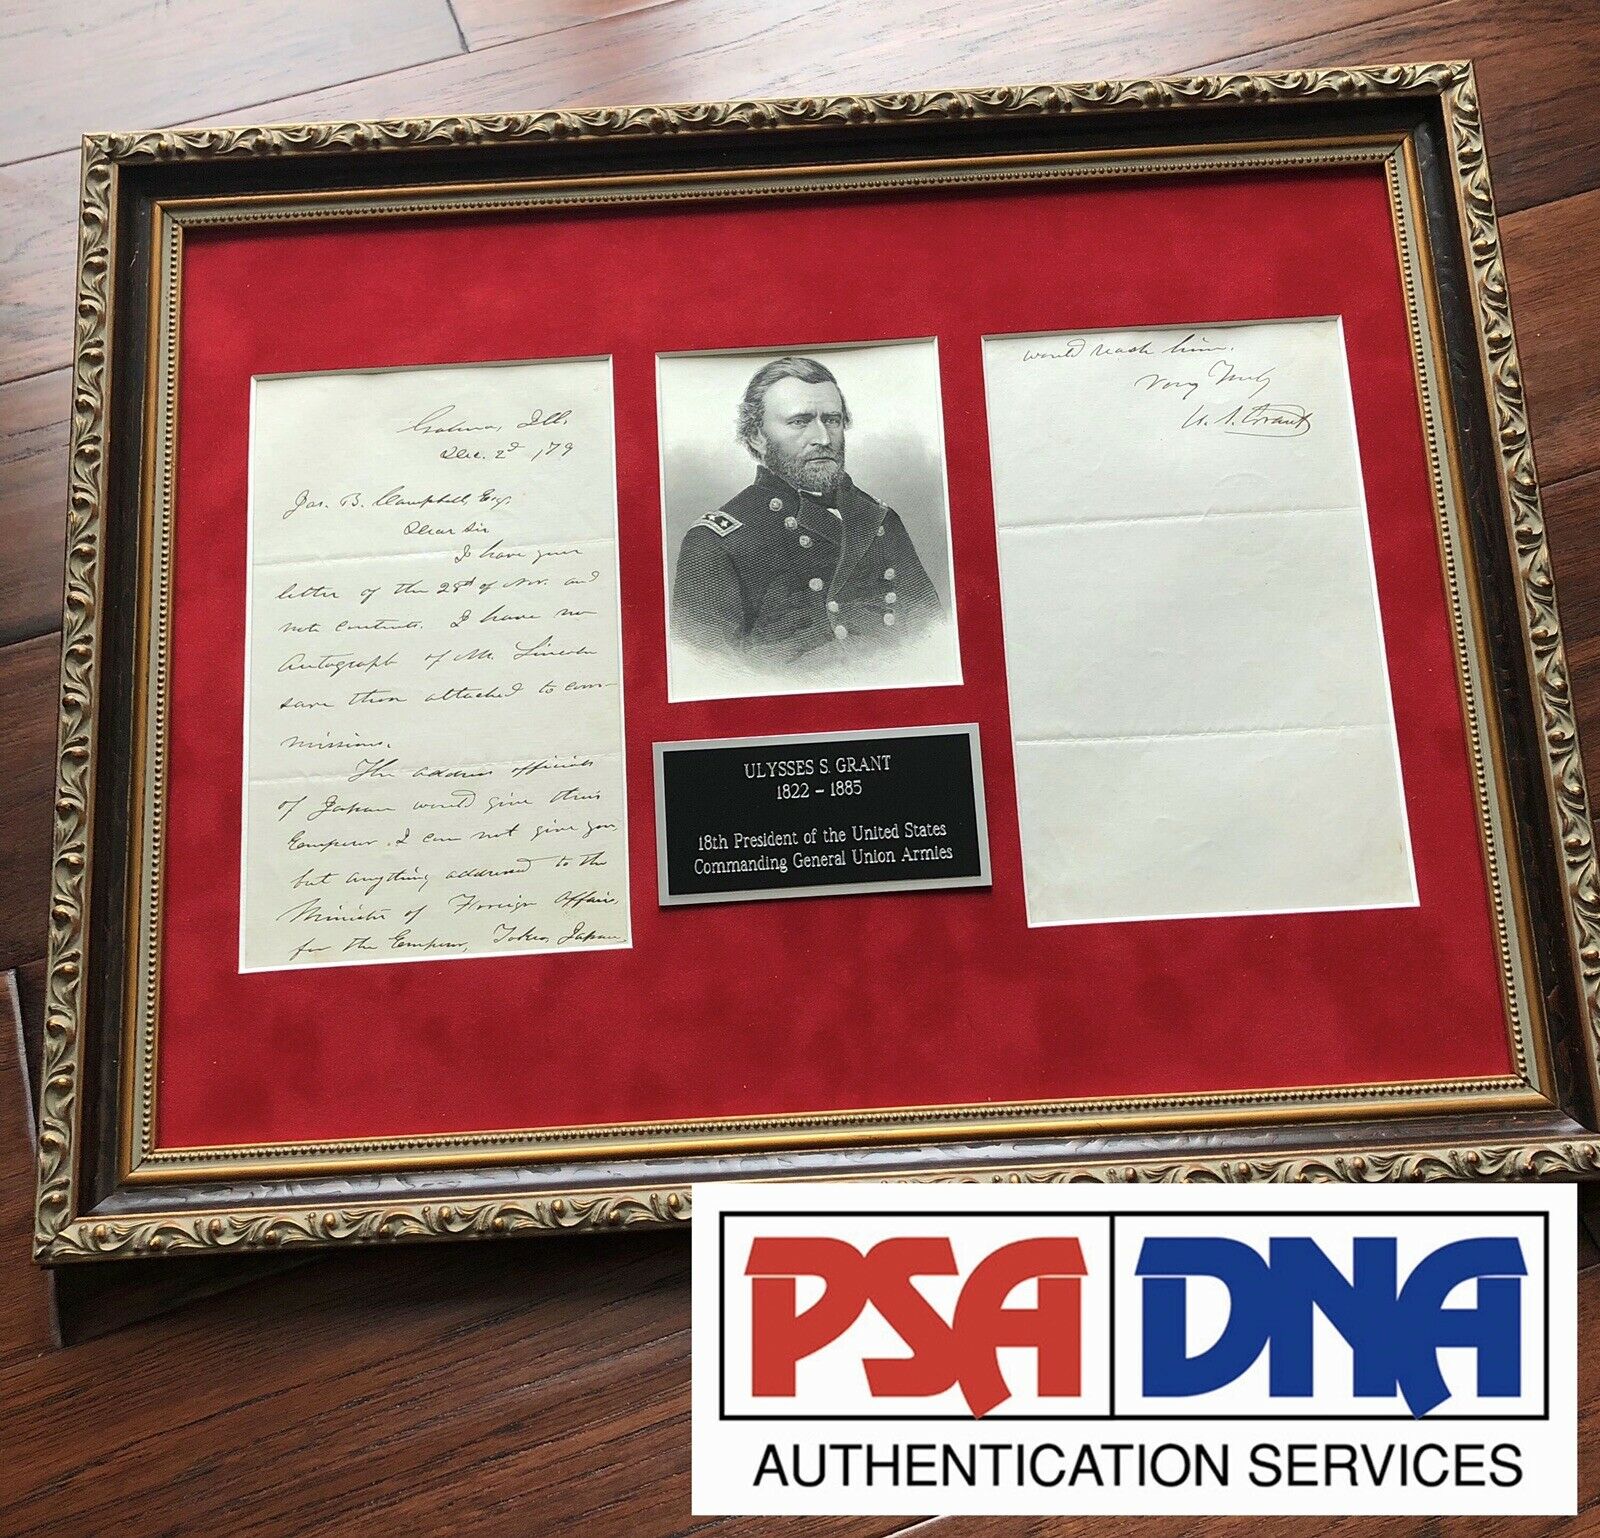 Galena, Ill.
Dec. 2d /79
Jas. B. Campbell, Esq.
Dear Sir
I have your
letter of the 28th of Nov. and
note contents. I have no
Autograph of Mr. Lincoln
save those attached to com-
missions.
The address officials
of Japan would give their
Emperor I can not give you,
but anything addressed to the
Minister of Foreign Affairs,
for the Emperor, Tokio, Japan
would reach him.
Very Truly
U. S. Grant
ULYSSES S. GRANT
1822 - 1885
18th President of the United States
Commanding General Union Armies
PSA DNA
AUTHENTICATION SERVICES